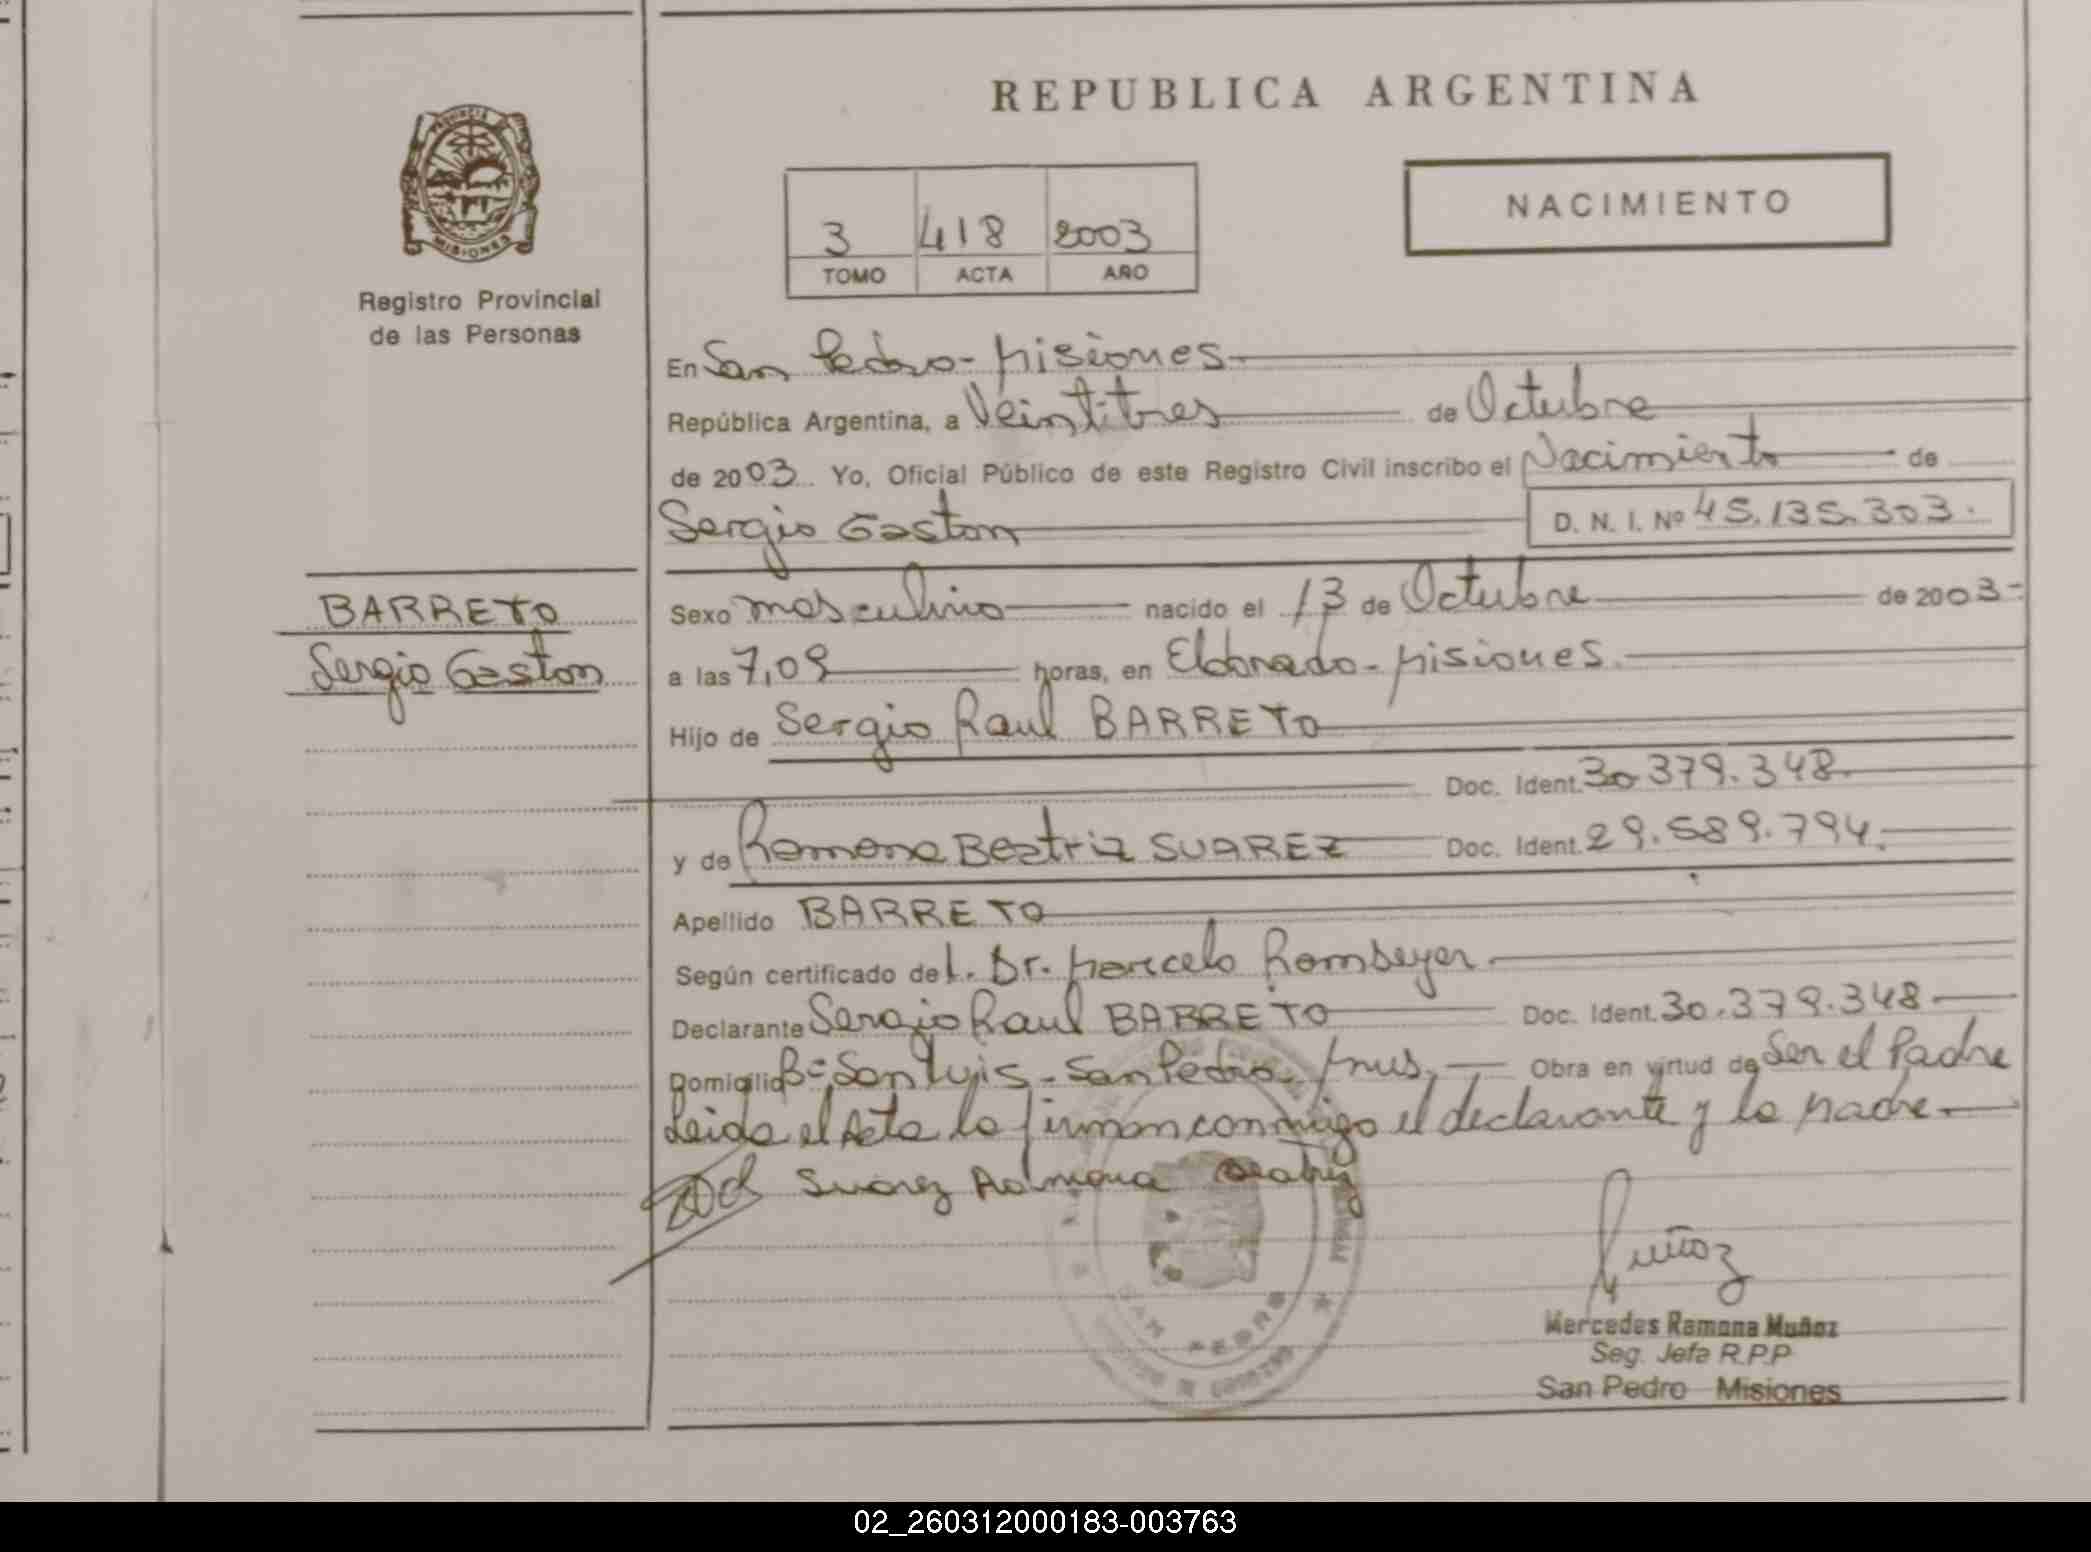 REPUBLICA ARGENTINA
PROVINCIA DE
MISIONES
Registro Provincial
de las Personas
NACIMIENTO
3 418 2003
TOMO ACTA AÑO
En San Pedro - Misiones
República Argentina, a Veintitres de Octubre
de 2003. Yo, Oficial Público de este Registro Civil inscribo el Nacimiento de
Sergio Gaston D. N. I. Nº 45.135.303.
BARRETO
Sergio Gaston
Sexo masculino nacido el 13 de Octubre de 2003-
a las 7,09 horas, en Eldorado - Misiones.
Hijo de Sergio Raul BARRETO
Doc. Ident. 30.379.348.
y de Ramona Beatriz SUAREZ Doc. Ident. 29.589.794.
Apellido BARRETO
Según certificado del. Dr. Marcelo
Declarante Sergio Raul BARRETO Doc. Ident. 30.379.348
Domicilio Bº San Luis - San Pedro - Mnes. Obra en virtud de Ser el Padre
Leida el Acta la firman conmigo el declarante y la Madre
Suarez Ramona Beatriz
Muñoz
Mercedes Ramona Muñoz
Seg. Jefa R.P.P
San Pedro Misiones
SAN PEDRO
02_260312000183-003763